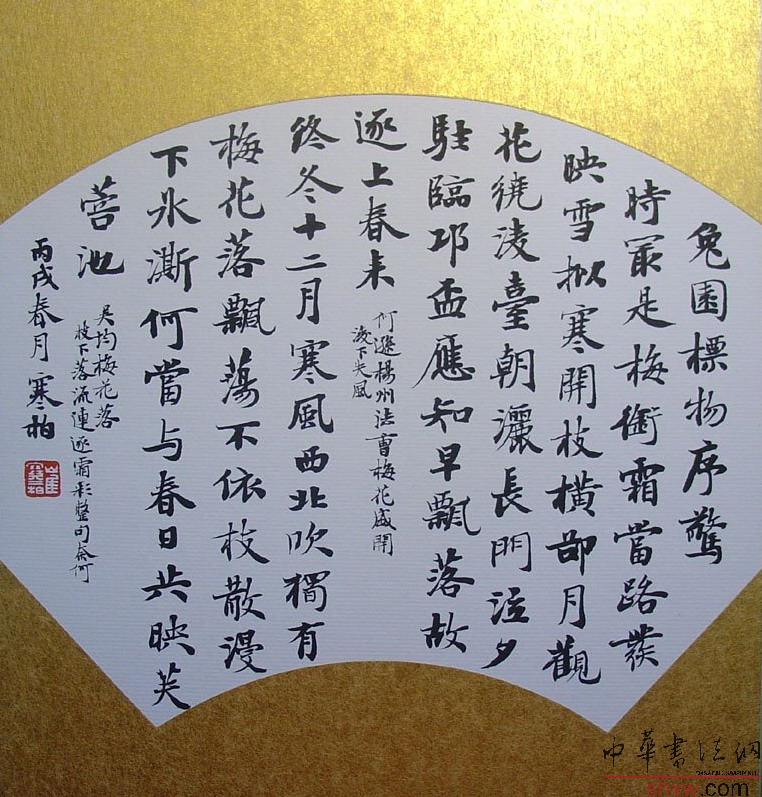 兔園標物序驚
時冣是梅銜霜當路發
映雪擬寒開枝橫郤月觀
花繞淩臺朝灑長門泣夕
駐臨邛盃應知早飄落故
逐上春来
何遜楊州法曹梅花盛開
淩下失風
終冬十二月寒風西北吹獨有
梅花落飄蕩不依枝散漫
下氷澌何當与春日共映芙
蓉池
吳均梅花落
枝下落流連逐霜彩整句奈何
丙戌春月寒柏
中華書法網
.com